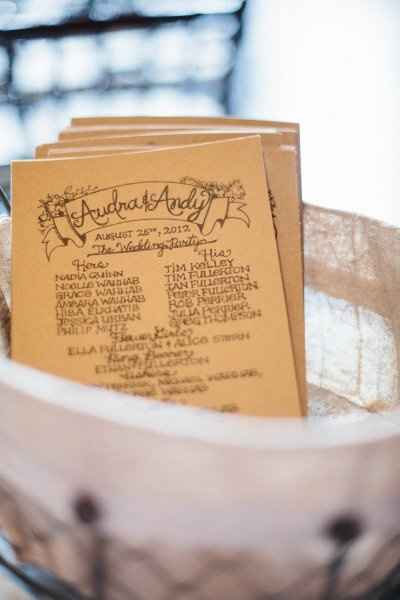 Audra & Andy
AUGUST 25TH, 2012
The Wedding Party
Hers
NADIA GUINN
NOELLE WAHHAB
GRACE WAHHAB
AMBARA WAHHAB
HIBA ELKHATIB
JESSICA URBAN
PHILIP MUTZ
His
TIM KELLEY
TIM FULLERTON
IAN FULLERTON
PETER FULLERTON
ROB PERRIER
JULIA PERRIER
GREG THOMPSON
Flower Girls
ELLA FULLERTON & ALICE STERN
Ring Bearer
ETHAN FULLERTON
MICHAEL WAHHAB,